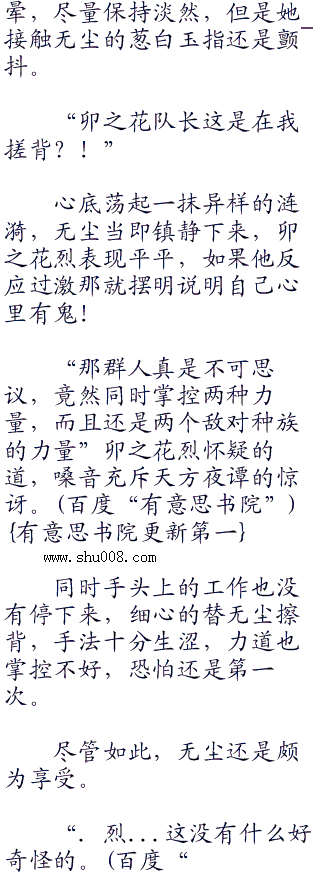 晕，尽量保持淡然，但是她
接触无尘的葱白玉指还是颤
抖。
“卯之花队长这是在我
搓背？！”
心底荡起一抹异样的涟
漪，无尘当即镇静下来，卯
之花烈表现平平，如果他反
应过激那就摆明说明自己心
里有鬼!
“那群人真是不可思
议，竟然同时掌控两种力
量，而且还是两个敌对种族
的力量”卯之花烈怀疑的
道，嗓音充斥天方夜谭的惊
讶。(百度“有意思书院”)
{有意思书院更新第一}
www.shu008.com
同时手头上的工作也没
有停下来，细心的替无尘擦
背，手法十分生涩，力道也
掌控不好，恐怕还是第一
次。
尽管如此，无尘还是颇
为享受。
“．烈...这没有什么好
奇怪的。(百度“